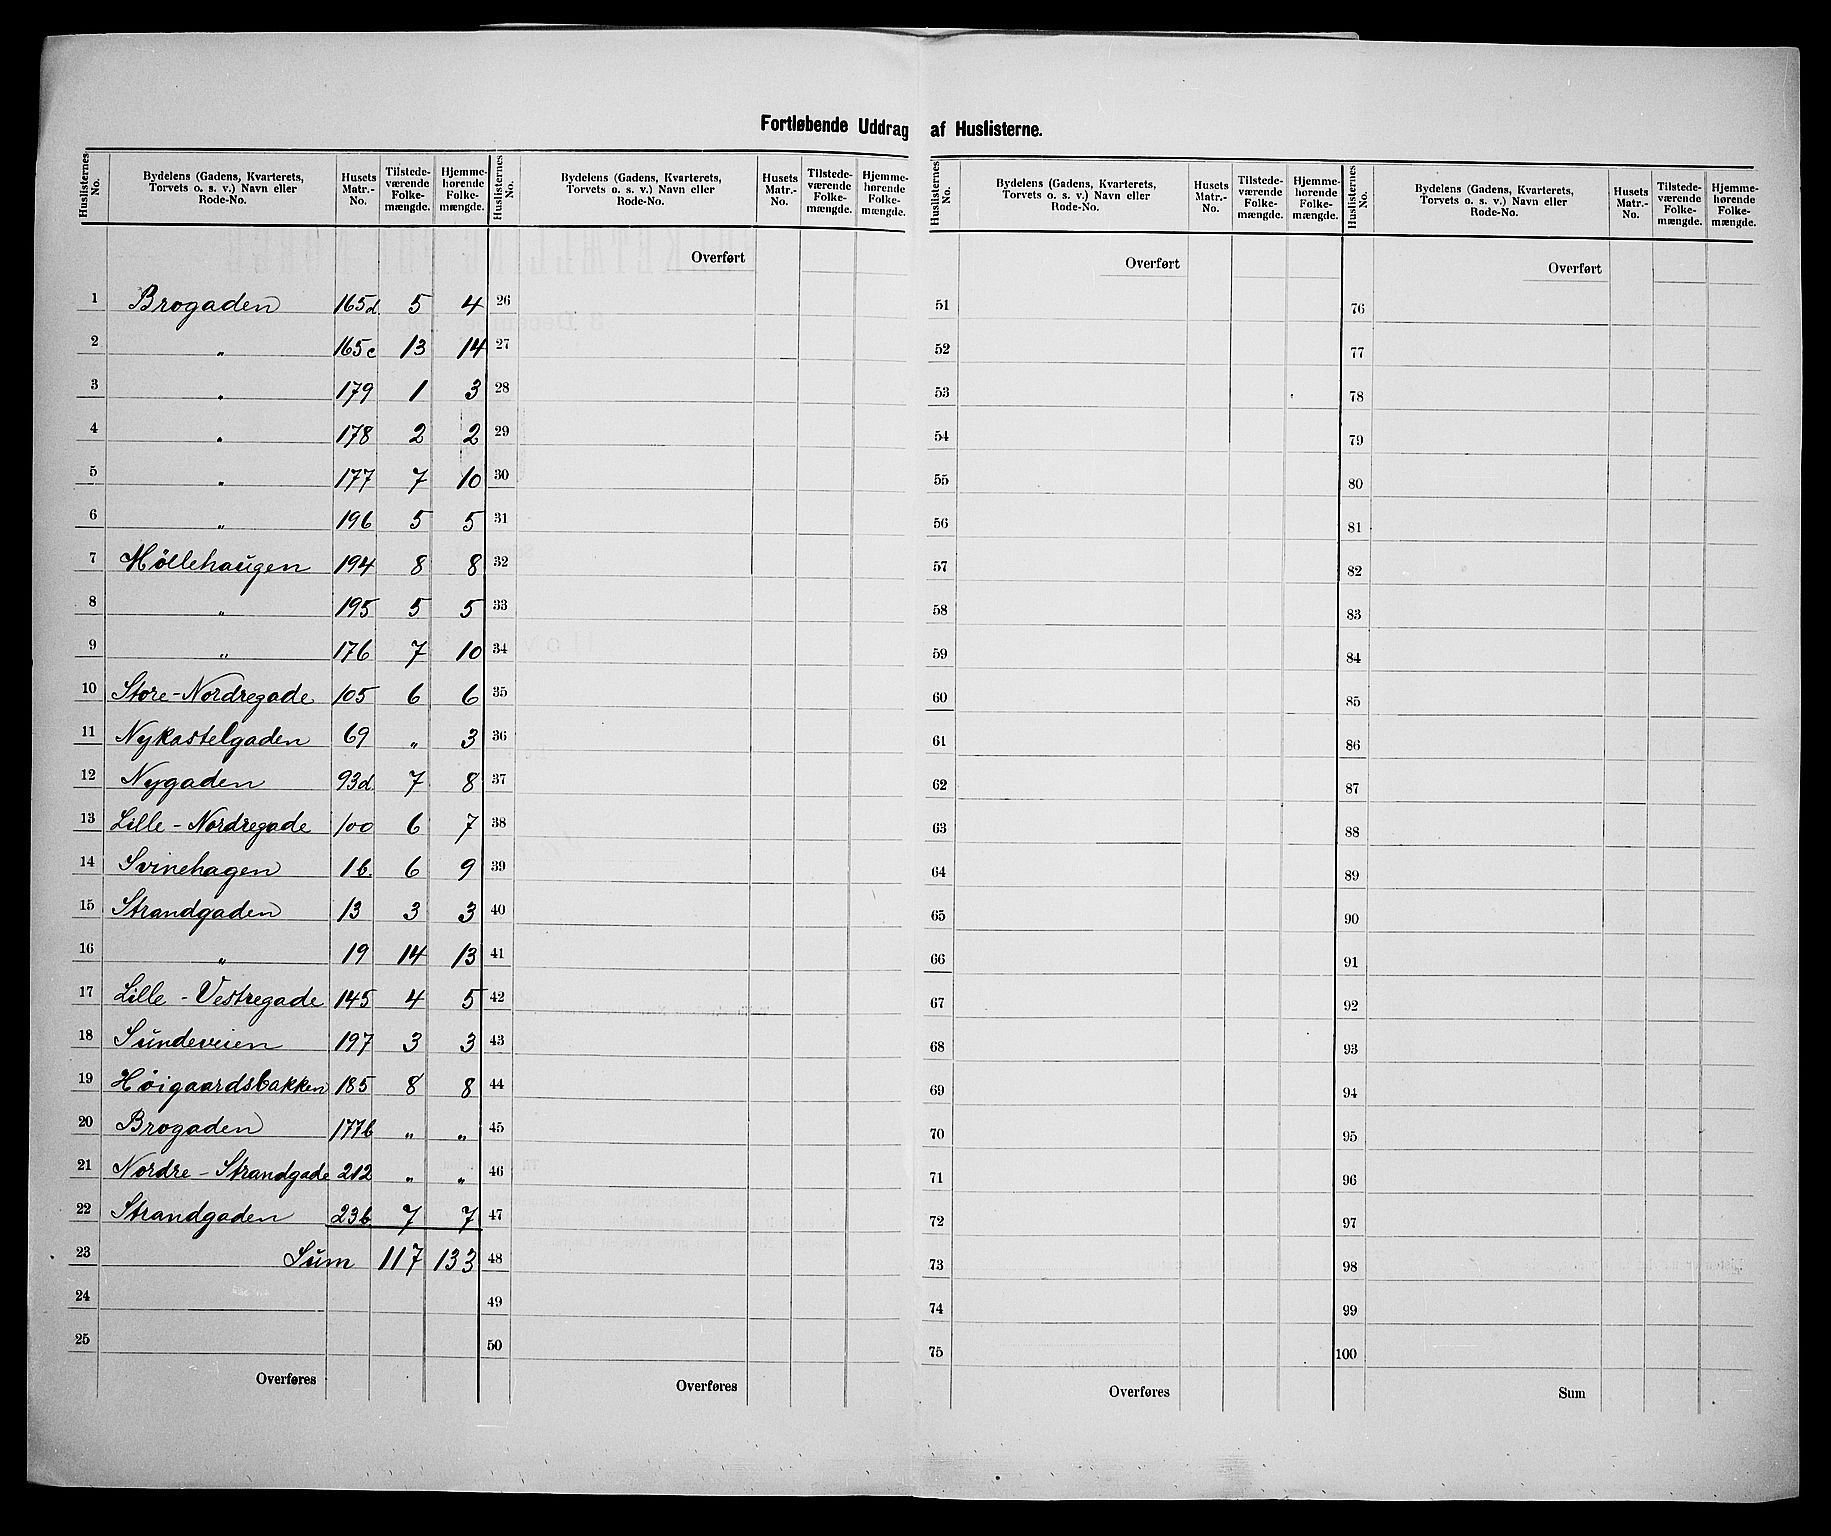 Fortløbende Uddrag af Huslisterne.
Huslisternes No. | Bydelens (Gadens, Kvarterets, Torvets o. s. v.) Navn eller Rode-No. | Husets Matr.-No. | Tilstedeværende Folkemængde. | Hjemmehørende Folkemængde. | Huslisternes No. | Bydelens (Gadens, Kvarterets, Torvets o. s. v.) Navn eller Rode-No. | Husets Matr.-No. | Tilstedeværende Folkemængde. | Hjemmehørende Folkemængde. | Huslisternes No. | Bydelens (Gadens, Kvarterets, Torvets o. s. v.) Navn eller Rode-No. | Husets Matr.-No. | Tilstedeværende Folkemængde. | Hjemmehørende Folkemængde. | Huslisternes No. | Bydelens (Gadens, Kvarterets, Torvets o. s. v.) Navn eller Rode-No. | Husets Matr.-No. | Tilstedeværende Folkemængde. | Hjemmehørende Folkemængde.
Overført Overført Overført
1 Brogaden 165d. 5 4 26 51 76
2 „ 165c 13 14 27 52 77
3 „ 179 1 3 28 53 78
4 „ 178 2 2 29 54 79
5 „ 177 7 10 30 55 80
6 „ 196 5 5 31 56 81
7 Møllehaugen 194 8 8 32 57 82
8 „ 195 5 5 33 58 83
9 „ 176 7 10 34 59 84
10 Store-Nordregade 105 6 6 35 60 85
11 Nykastelgaden 69 „ 3 36 61 86
12 Nygaden 93d. 7 8 37 62 87
13 Lille-Nordregade 100 6 7 38 63 88
14 Svinehagen 1b. 6 9 39 64 89
15 Strandgaden 13 3 3 40 65 90
16 „ 19 14 13 41 66 91
17 Lille-Vestregade 145 4 5 42 67 92
18 Sundeveien 197 3 3 43 68 93
19 Høigaardsbakken 185 8 8 44 69 94
20 Brogaden 177b „ „ 45 70 95
21 Nordre-Strandgade 212 „ „ 46 71 96
22 Strandgaden 23b. 7 7 47 72 97
23 Sum 117 133 48 73 98
24 49 74 99
25 50 75 100
Overføres Overføres Overføres Sum